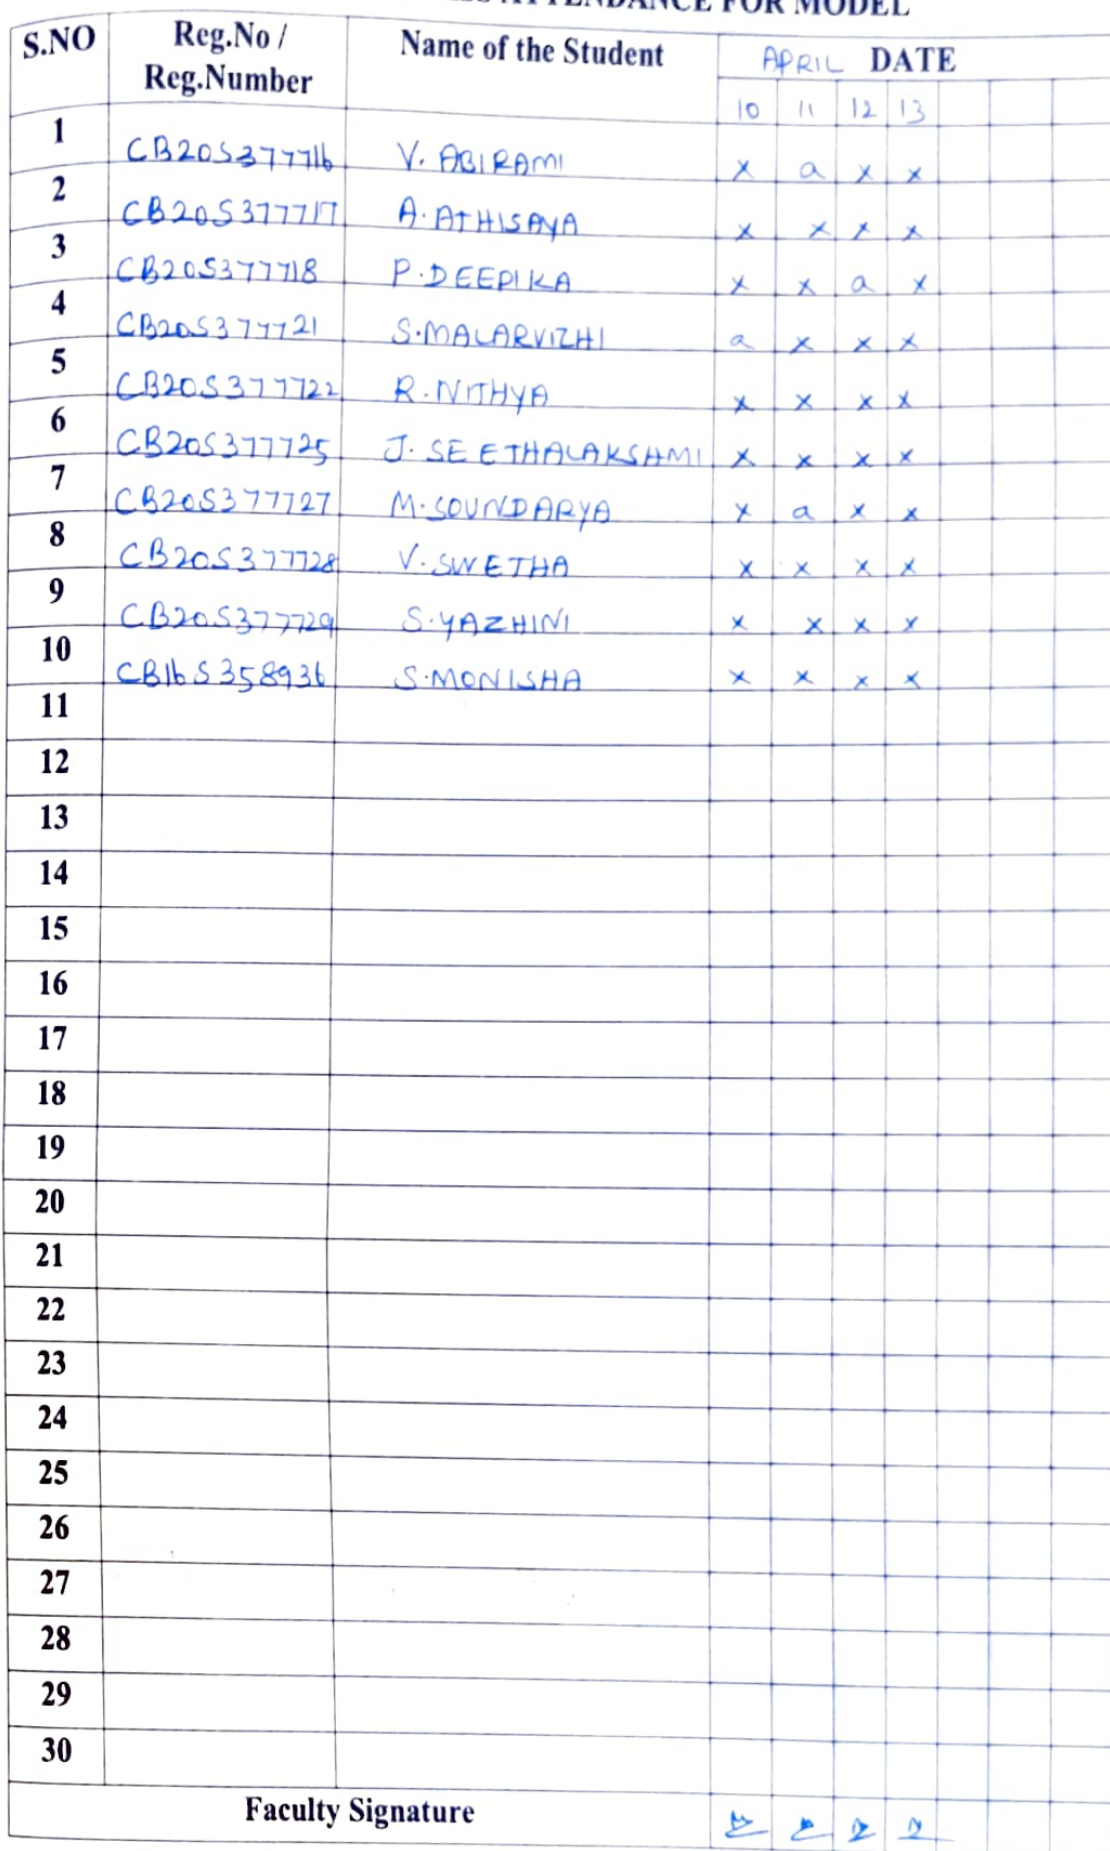 ATTENDANCE FOR MODEL
S.NO Reg.No / Reg.Number Name of the Student APRIL DATE
10 11 12 13
1 CB20S377716 V. ABIRAMI x a x x
2 CB20S377717 A. ATHISAYA x x x x
3 CB20S377718 P. DEEPIKA x x a x
4 CB20S377721 S. MALARVIZHI a x x x
5 CB20S377722 R. NITHYA x x x x
6 CB20S377725 J. SEETHALAKSHMI x x x x
7 CB20S377727 M. SOUNDARYA x a x x
8 CB20S377728 V. SWETHA x x x x
9 CB20S377729 S. YAZHINI x x x x
10 CB16S358936 S. MONISHA x x x x
11
12
13
14
15
16
17
18
19
20
21
22
23
24
25
26
27
28
29
30
Faculty Signature